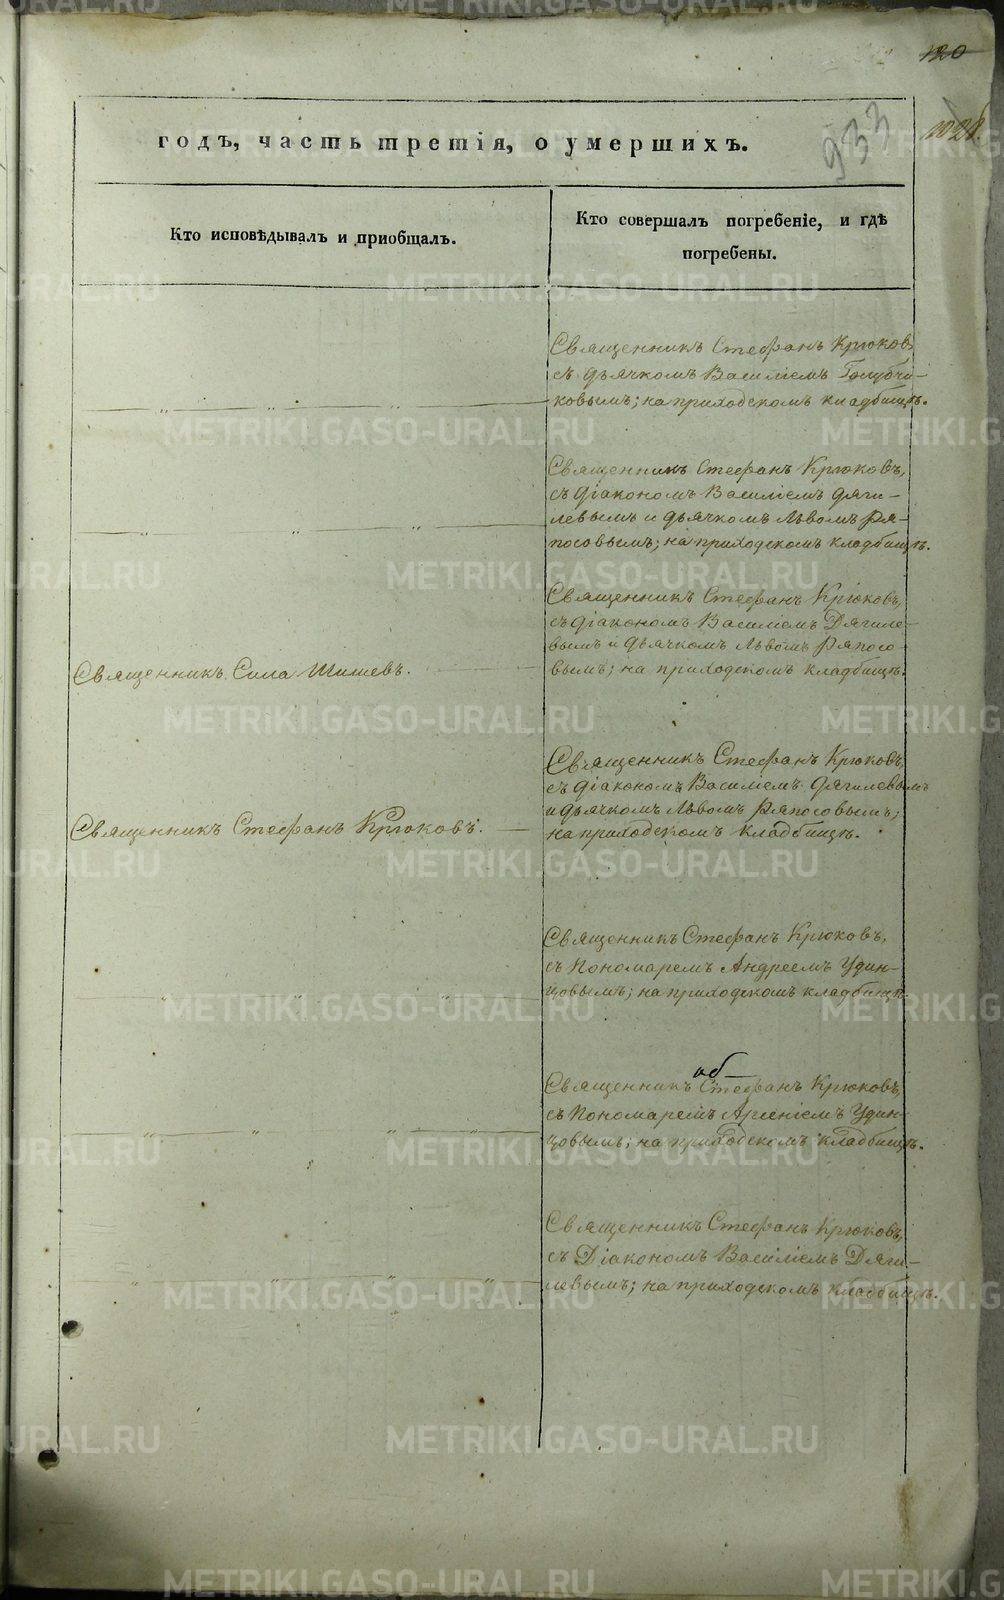 120
1028.
933
годъ, часть третія, о умершихъ.
Кто исповѣдывалъ и приобщалъ.
Кто совершалъ погребеніе, и гдѣ
погребены.
Священникъ Стефанъ Крюковъ
съ дьячкомъ Василіемъ Голубчи-
ковымъ; на приходскомъ кладбищѣ.
Священникъ Стефанъ Крюковъ,
съ діакономъ Василіемъ Дяги-
левымъ и дьячкомъ Львомъ Ря-
посовымъ; на приходскомъ кладбищѣ.
Священникъ Сила Шишевъ.
Священникъ Стефанъ Крюковъ,
съ діакономъ Василіемъ Дягиле-
вымъ и дьячкомъ Львомъ Ряпосо-
вымъ; на приходскомъ кладбищѣ.
Священникъ Стефанъ Крюковъ.
Священникъ Стефанъ Крюковъ,
съ діакономъ Василіемъ Дягилевымъ
и дьячкомъ Львомъ Ряпосовымъ;
на приходскомъ кладбищѣ.
Священникъ Стефанъ Крюковъ,
съ Пономаремъ Андреемъ Удин-
цовымъ; на приходскомъ кладбищѣ.
об
Священникъ Стефанъ Крюковъ,
съ Пономаремъ Арсеніемъ Удин-
цовымъ; на приходскомъ кладбищѣ.
Священникъ Стефанъ Крюковъ,
съ Діакономъ Василіемъ Дяги-
левымъ; на приходскомъ кладбищѣ.
METRIKI.GASO-URAL.RU